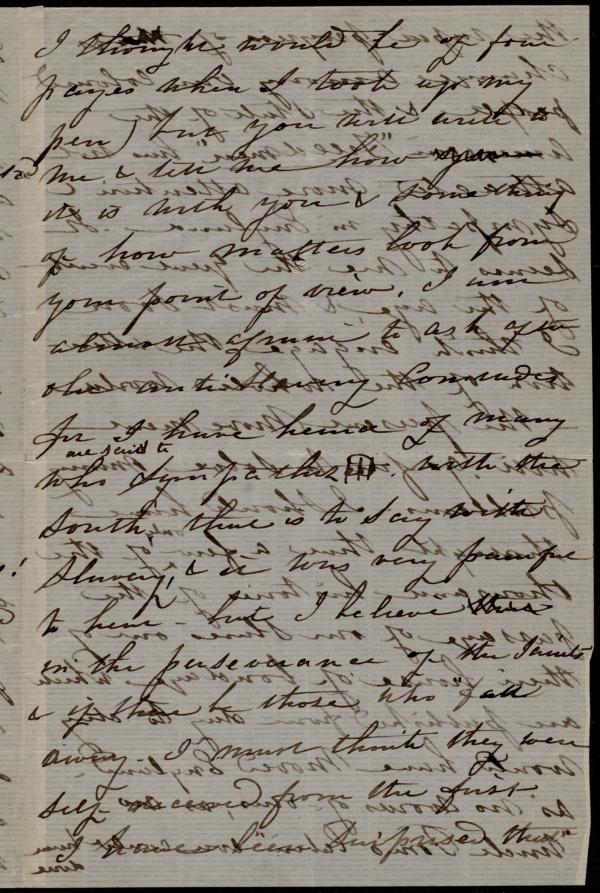 I thought would be of four
pages when I took up my
pen) but you will write to
me & tell me how
it is with you & something
of how matters look from
your point of view. I am
almost afraid to ask after
old anti Slavery Comrades
for I have heard of many
are said to
who sympathise with the
South, that is to say with
Slavery, & it was very painful
to hear - but I believe
in the perseverance of the Saints
& if there be those who "fall
away" I must think they were
self deceived from the first
I have been surprised that